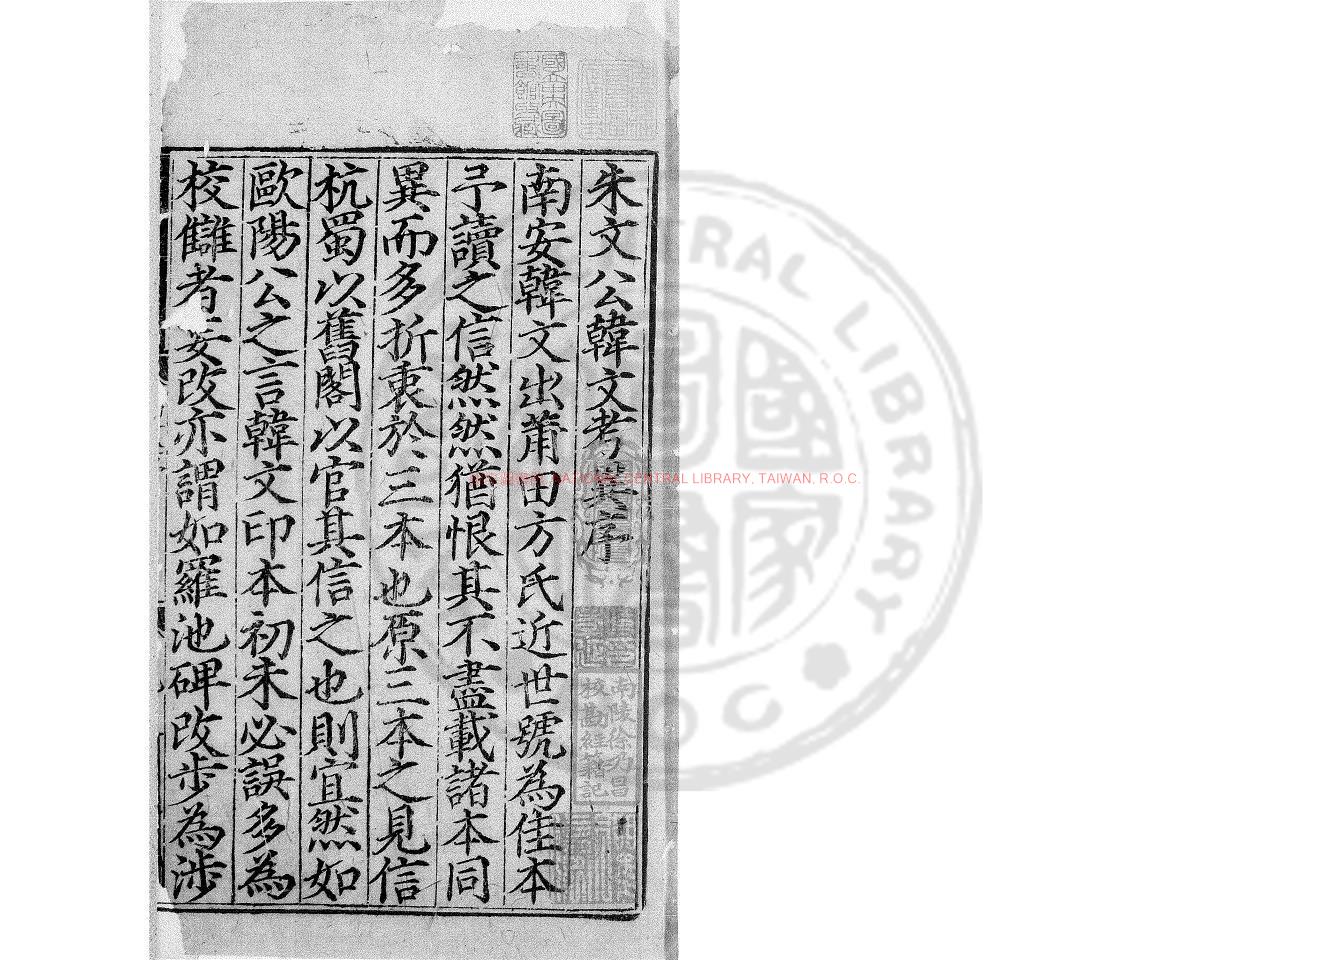 朱文公韓文考異序
南安韓文出莆田方氏近世號為佳本
予讀之信然然猶恨其不盡載諸本同
異而多折衷於三本也原三本之見信
杭蜀以舊閣以官其信之也則宜然如
歐陽公之言韓文印本初未必誤多為
校讎者妄改亦謂如羅池碑改步為涉
南陵徐乃昌
校勘經籍記
國立中央圖書館 NATIONAL CENTRAL LIBRARY, TAIWAN, R.O.C.